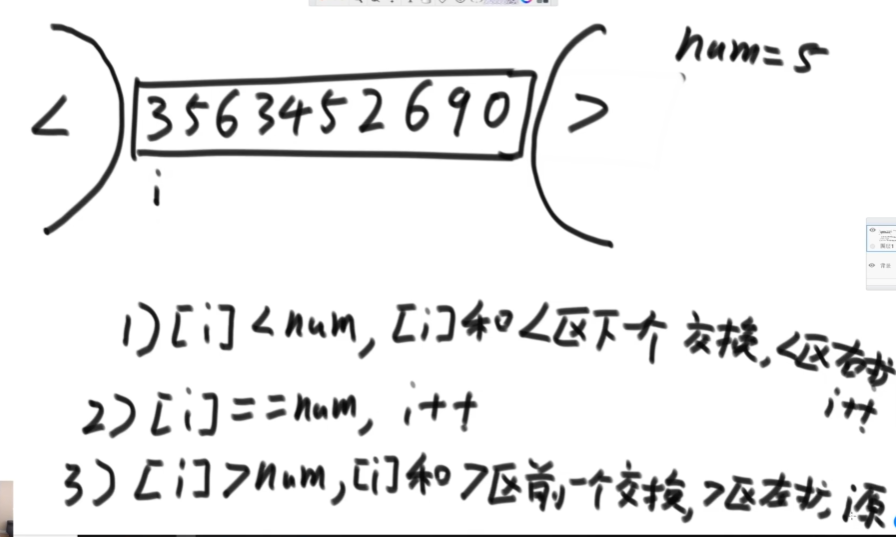 num=5
< 3563452690 >
i
1) [i]<num, [i]和<区下一个 交换, <区右扩
i++
2) [i]==num, i++
3) [i]>num, [i]和>区前一个交换, >区左扩, i原